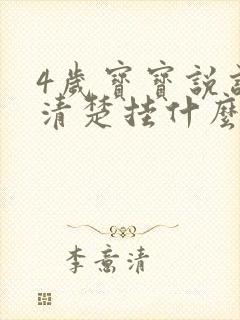 4歲寶寶說
清楚挂什麼
李意清